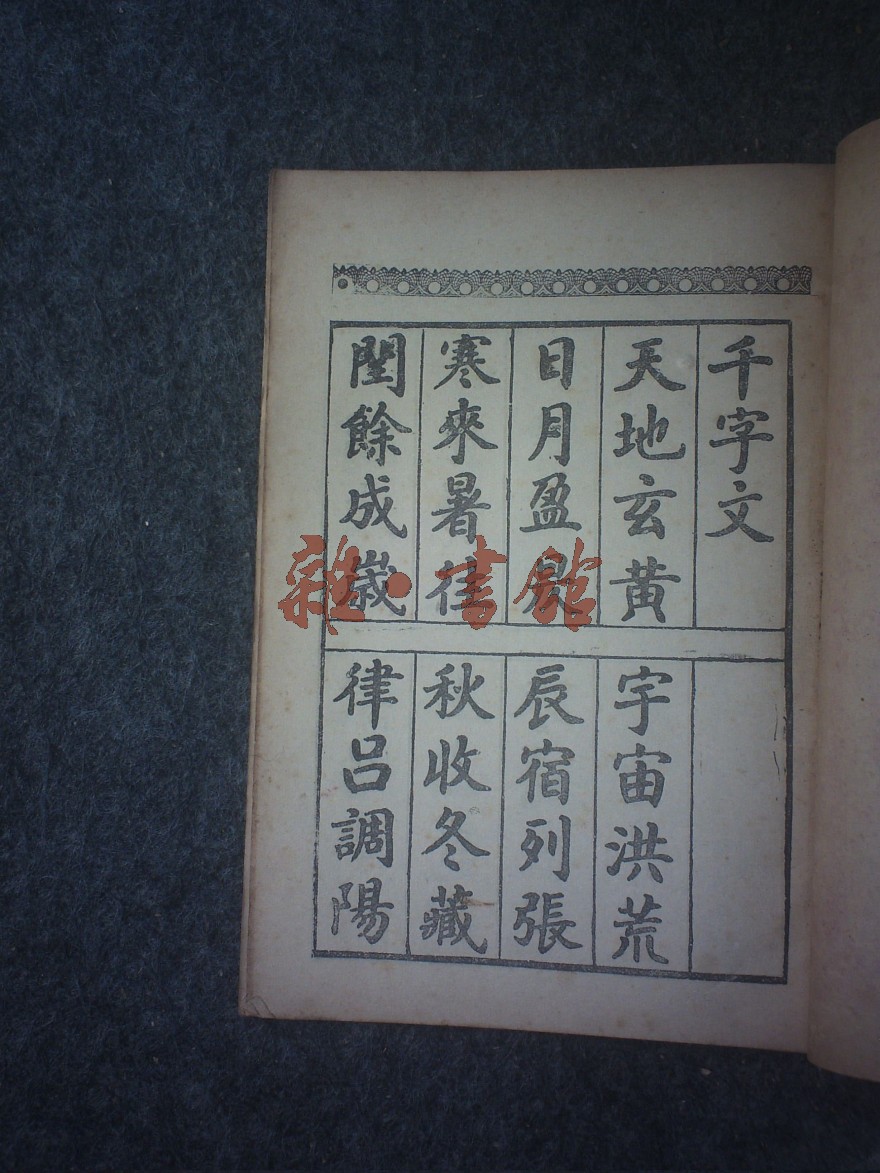 千字文
天地玄黃
宇宙洪荒
日月盈昃
辰宿列張
寒來暑往
秋收冬藏
閏餘成嵗
律呂調陽
雜·書館